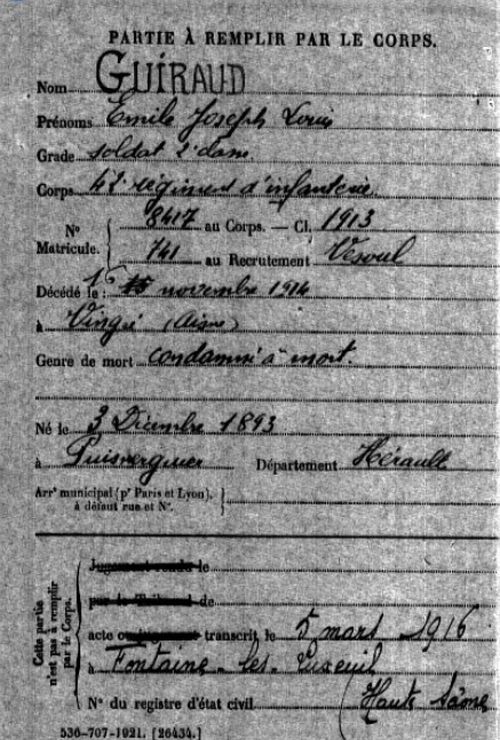 PARTIE À REMPLIR PAR LE CORPS.
Nom GUIRAUD
Prénoms Emile Joseph Louis
Grade soldat 2e classe
Corps 42e régiment d'infanterie
N° Matricule. { 8417 au Corps. — Cl. 1913
741 au Recrutement Vesoul
Décédé le : 16 15 novembre 1914
à Vingré (Aisne)
Genre de mort condamné à mort.
Né le 3 Décembre 1893
à Puisserguier Département Hérault
Arrt municipal (pr Paris et Lyon), à défaut rue et N°. }
Cette partie n'est pas à remplir par le Corps.
Jugement rendu le
par le Tribunal de
acte ou jugement transcrit le 5 mars 1916
à Fontaine-les-Luxeuil
N° du registre d'état civil (Haute Saône
536-707-1921. [26434.]